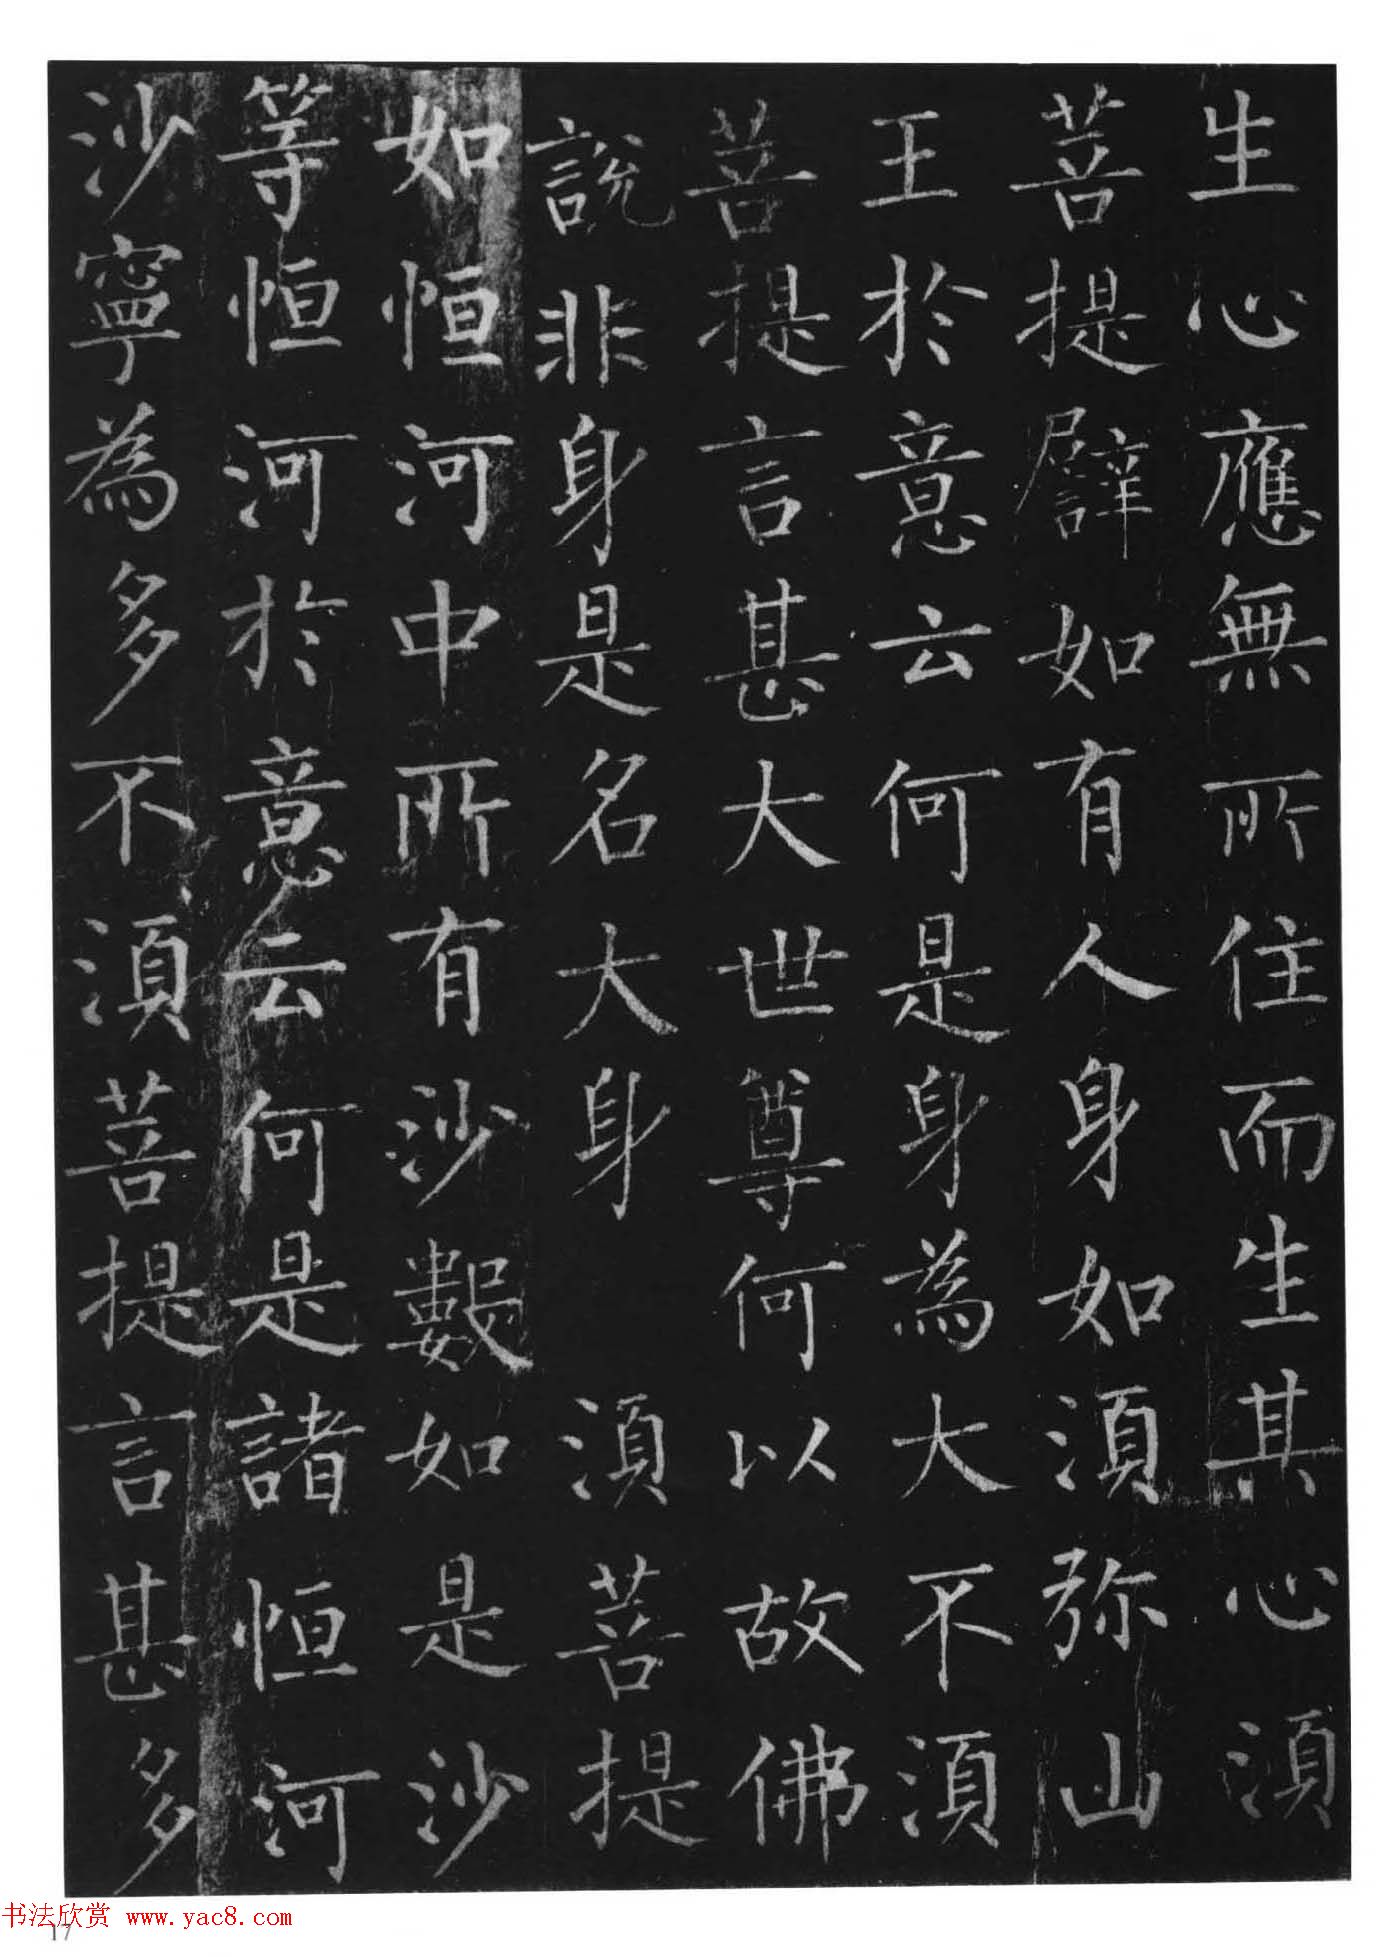 生心應無所住而生其心須
菩提譬如有人身如須弥山
王於意云何是身為大不須
菩提言甚大世尊何以故佛
說非身是名大身 須菩提
如恒河中所有沙數如是沙
等恒河於意云何是諸恒河
沙寧為多不須菩提言甚多
书法欣赏 www.yac8.com
17